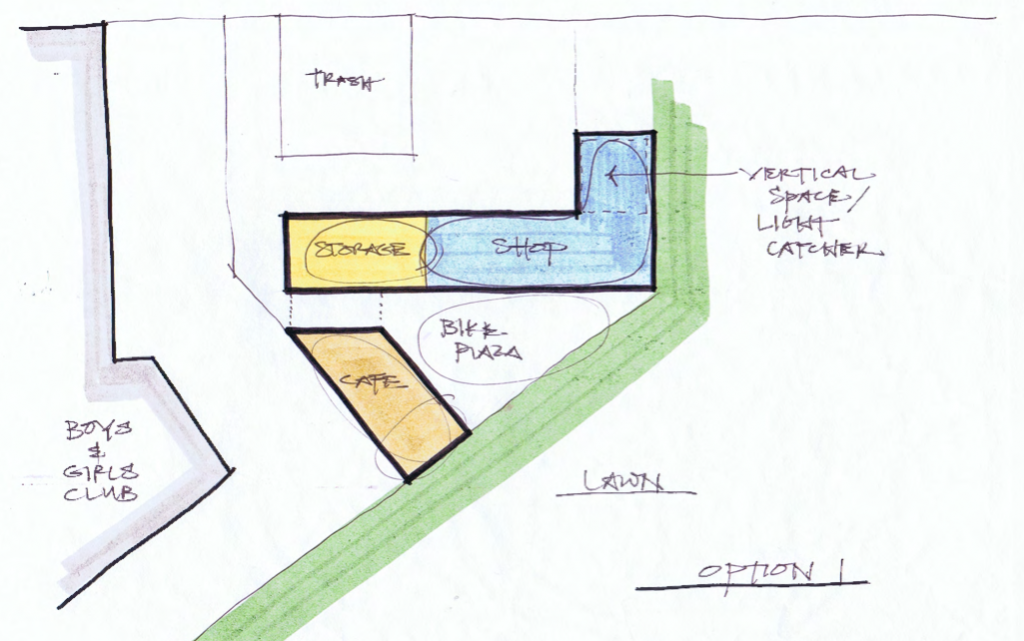 TRASH
VERTICAL
SPACE/
LIGHT
CATCHER
STORAGE
SHOP
BIKE
PLAZA
CAFE
BOYS
&
GIRLS
CLUB
LAWN
OPTION 1